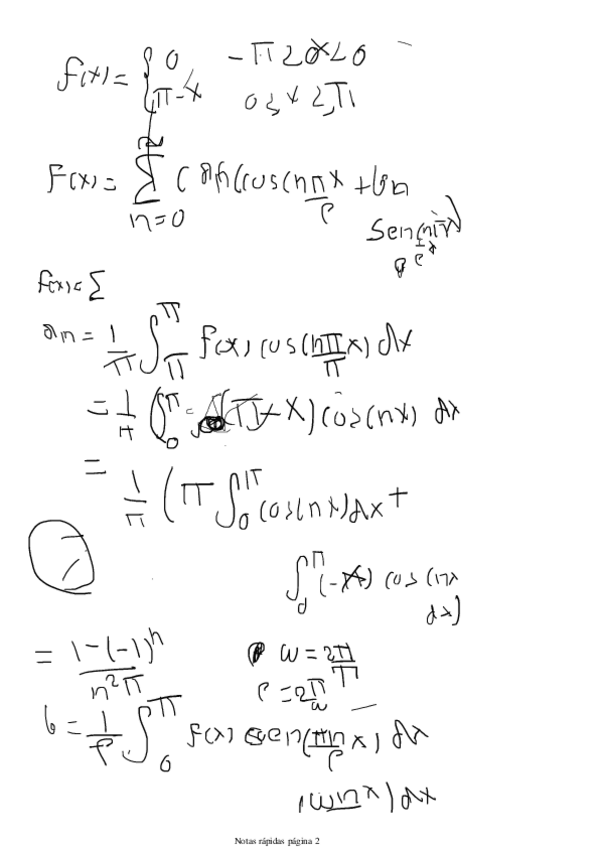 f(x) = { 0   -π < x < 0
π-x   0 ≤ x < π
F(x) = Σ n=0 ( an cos(nπx/p + bn
Sen(nπx/p)
f(x) = Σ
an = 1/π ∫ π π f(x) cos(nπ/π x) dx
= 1/π ∫ 0 π (π-x) cos(nx) dx
=
1/π ( π ∫ 0 π cos(nx) dx +
∫ 0 π (-x) cos(nx
dx)
= 1-(-1)^n / n²π
w = 2π/T
p = 2π/w
b = 1/p ∫ 0 π f(x) sen(πn/p x) dx
x) dx
Notas rápidas página 2